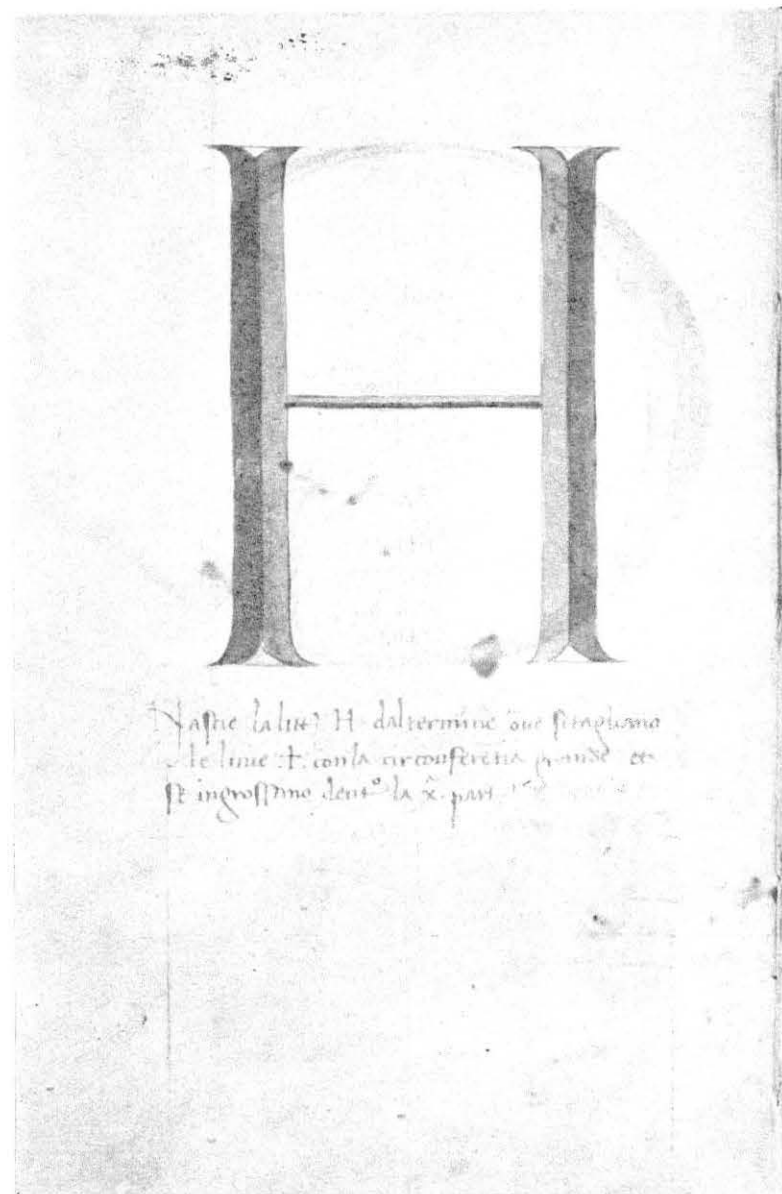 H
Nascie la litt̄ H daltermine oue se tagliano
le linie .†. con la circonferētia grande et
se ingrossano dent° la x̄. part